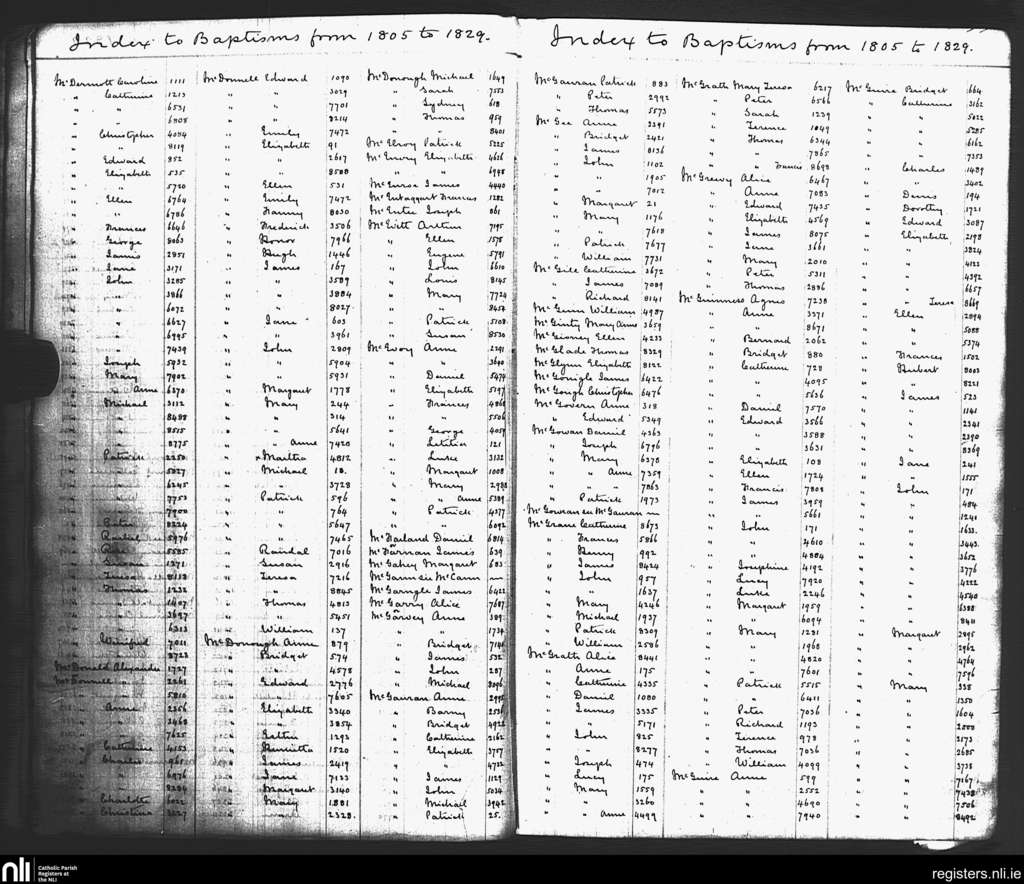 Index to Baptisms from 1805 to 1829.
McDermott Caroline 1111
" Catherine 1213
" " 6531
" " 6808
" Christopher 4084
" " 8119
" Edward 852
" Elizabeth 535
" " 5720
" Ellen 6764
" " 6786
" Frances 6646
" George 8063
" James 2851
" Jane 3171
" John 3285
" " 3866
" " 6072
" " 6627
" " 6995
" " 7439
" Joseph 5932
" Mary 7902
" " Anne 6370
" Michael 3112
" " 8488
" " 8515
" " 8775
" Patrick 2250
" " 5027
" " 6245
" " 7753
" " 7900
" Peter 8224
" Rachel 5976
" Rose 5585
" Susan 1371
" Teresa 8138
" Thomas 1232
" " 1407
" " 3697
" " 6313
" Winifred 7011
" " 8723
McDonald Alexander 1727
McDonnell " 2261
" " 5810
" Anne 2356
" " 3468
" " 7625
" Catherine 4153
" Charles 965
" " 6976
" " 8284
" Charlotte 6022
" Christina 3327
McDonnell Edward 1090
" " 3029
" " 7701
" " 8214
" Emily 7472
" Elizabeth 91
" " 2617
" " 8588
" Ellen 531
" Emily 7472
" Fanny 8030
" Frederick 3506
" Honor 7966
" Hugh 1446
" James 167
" " 3589
" " 3884
" " 8027
" Jane 603
" " 3961
" John 2809
" " 5904
" " 5931
" Margaret 1778
" Mary 244
" " 314
" " 5641
" " Anne 7420
" Martha 4812
" Michael 18
" " 3728
" Patrick 596
" " 764
" " 5647
" " 7465
" Randal 7016
" Susan 2916
" Teresa 7216
" " 8845
" Thomas 4813
" " 5451
" William 137
McDonough Anne 879
" Bridget 574
" " 4578
" Edward 2776
" " 7605
" Elizabeth 3340
" " 3854
" Esther 1293
" Henrietta 1520
" James 2419
" Jane 7133
" Margaret 3140
" Mary 1881
" " 2328
McDonough Michael 1649
" Sarah 7553
" Sydney 618
" Thomas 959
" " 8401
McElroy Patrick 5225
McEnroy Elizabeth 4626
" " 6948
McEnroe James 4440
McEntaggart Frances 1282
McEntee Joseph 861
McEvitt Arthur 7195
" Ellen 1578
" Eugene 5791
" John 6610
" Louis 8145
" Mary 7724
" " 8454
" Patrick 5108
" Susan 8530
McEvoy Anne 2291
" " 3640
" Daniel 5474
" Elizabeth 5197
" Frances 4868
" " 5506
" George 4059
" Letitia 121
" Luke 3132
" Margaret 1008
" Mary 2988
" " Anne 5389
" Patrick 4377
" " 6092
McFarland Daniel 6814
McFarnan James 639
McGahey Margaret 683
McGann see McCann —
McGarrigle James 6422
McGarry Alice 7687
McGarvey Anne 389
" " 1734
" Bridget 7146
" James 532
" John 287
" Michael 8096
McGauran Anne 2992
" Barny 2536
" Bridget 4922
" Catherine 2162
" Elizabeth 3757
" " 4732
" James 1129
" John 5034
" Michael 3942
" Patrick 25
Index to Baptisms from 1805 to 1829.
McGauran Patrick 883
" Peter 2992
" Thomas 5573
McGee Anne 3391
" Bridget 2421
" James 8136
" John 1102
" " 1905
" " 7012
" Margaret 21
" Mary 1176
" " 7618
" Patrick 7677
" William 7731
McGill Catherine 3672
" James 7089
" Richard 8141
McGinn William 4987
McGinty Mary Anne 3659
McGivney Ellen 4233
McGlade Thomas 8329
McGlynn Elizabeth 8122
McGonigle James 6422
McGough Christopher 6476
McGovern Anne 318
" Edward 5349
McGowan Daniel 4363
" Joseph 6796
" Mary 6378
" " Anne 7359
" " 7863
" Patrick 1973
McGowran see McGauran —
McGrane Catherine 8673
" Frances 5866
" Henry 992
" James 8424
" John 957
" " 1637
" Mary 4246
" Michael 1937
" Patrick 8309
" William 2586
McGrath Alice 8441
" Anne 175
" Catherine 4335
" Daniel 1080
" James 3335
" " 5171
" John 825
" " 8277
" Joseph 474
" Lucy 175
" Mary 1559
" " 3260
" " Anne 4499
McGrath Mary Teresa 6217
" Peter 6566
" Sarah 1239
" Terence 1849
" Thomas 6344
" " 7865
" " Francis 8698
McGreevy Alice 6467
" Anne 7083
" Edward 7435
" Elizabeth 4569
" James 8075
" Jane 3661
" Mary 2010
" Peter 5311
" Thomas 2886
McGuinness Agnes 7238
" Anne 3371
" " 8671
" Bernard 2062
" Bridget 880
" Catherine 728
" " 4095
" " 5636
" Daniel 7570
" Edward 3566
" " 3588
" " 3631
" Elizabeth 108
" Ellen 1724
" Francis 7808
" James 3959
" " 5661
" John 171
" " 4610
" " 4884
" Josephine 4192
" Lucy 7920
" Luke 2246
" Margaret 1959
" " 6094
" Mary 1281
" " 1968
" " 4820
" " 7601
" Patrick 5515
" " 6411
" Peter 7036
" Richard 1193
" Terence 978
" Thomas 7036
" William 4099
McGuire Anne 599
" " 2552
" " 4690
" " 7940
McGuire Bridget 664
" Catherine 3162
" " 5022
" " 5285
" " 6162
" " 7353
" Charles 1489
" " 3402
" Denis 194
" Dorothy 1721
" Edward 3087
" Elizabeth 2198
" " 3824
" " 4123
" " 4392
" " 6657
" " Teresa 8669
" Ellen 2894
" " 5088
" " 5374
" Frances 1502
" Herbert 8003
" " 8221
" James 523
" " 1141
" " 2341
" " 2390
" " 8369
" Jane 241
" " 1555
" John 171
" " 484
" " 1241
" " 1633
" " 3443
" " 3652
" " 3776
" " 4222
" " 4540
" " 6388
" " 8411
" Margaret 2895
" " 2962
" " 4764
" " 7596
" Mary 338
" " 1350
" " 1604
" " 2500
" " 2173
" " 2685
" " 3738
" " 7167
" " 7438
" " 7506
" " 8492
nli Catholic Parish
Registers at
the NLI
registers.nli.ie